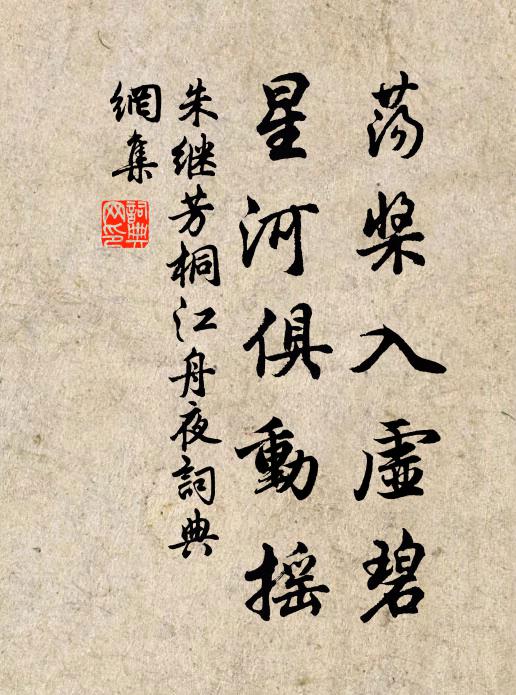 荡桨入虚碧
星河俱動摇
朱继芳桐江舟夜詞典
網集
詞典网印